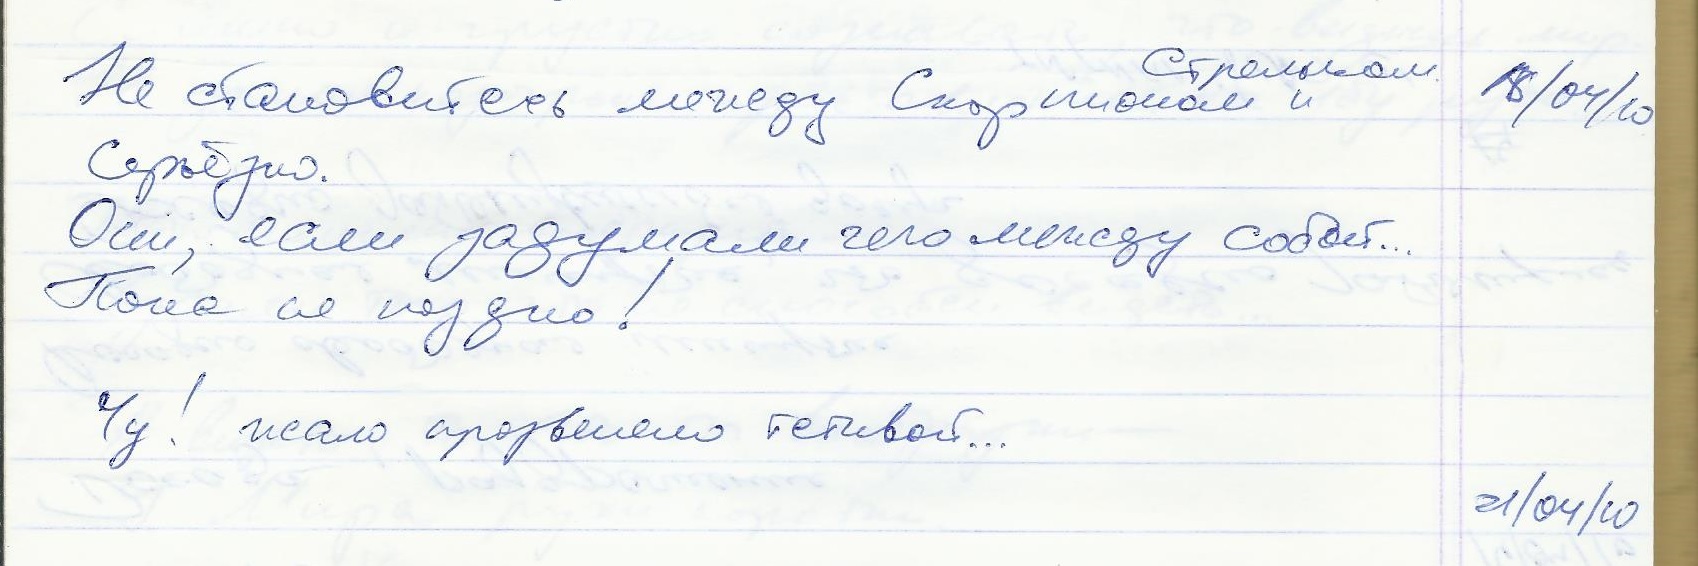 Не становитесь между Скорпионом и Стрельцом 18/04/10
Серьёзно.
Они, если задумали чего между собой...
Пока не поздно!
Чу! жало прозвенело тетивой...
21/04/10